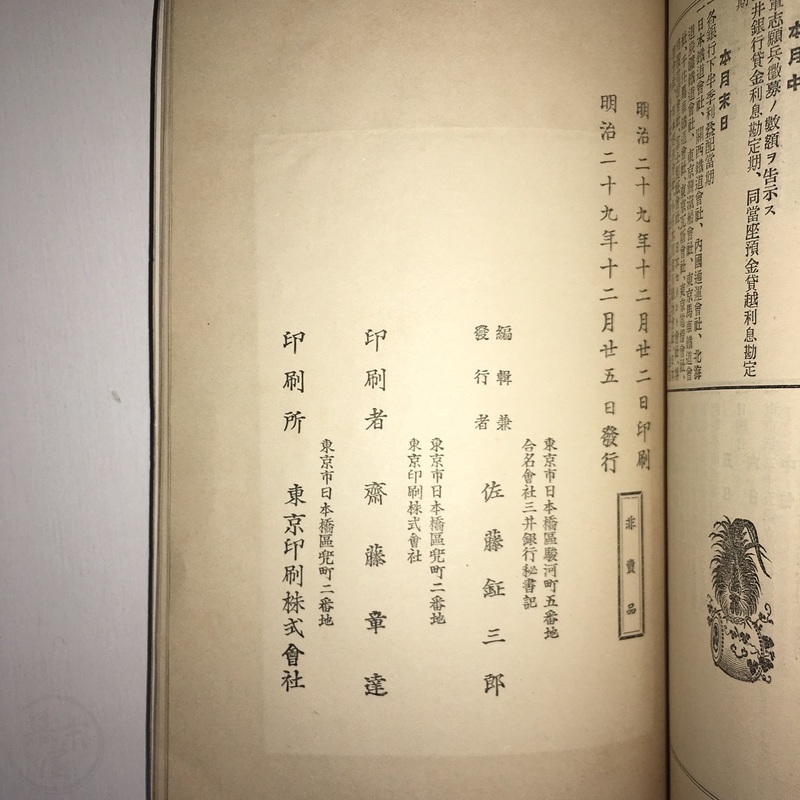 本月中
軍志願兵徵募ノ數額ヲ告示ス
井銀行貸金利息勘定期、同當座預金貸越利息勘定
期
本月末日
一各銀行下半季利發配當期
明治二十九年十二月廿二日印刷
明治二十九年十二月廿五日發行
非賣品
東京市日本橋區駿河町五番地
合名會社三井銀行秘書記
編輯兼
發行者
佐藤鉦三郎
東京市日本橋區兜町二番地
東京印刷株式會社
印刷者
齋藤章達
東京市日本橋區兜町二番地
印刷所
東京印刷株式會社